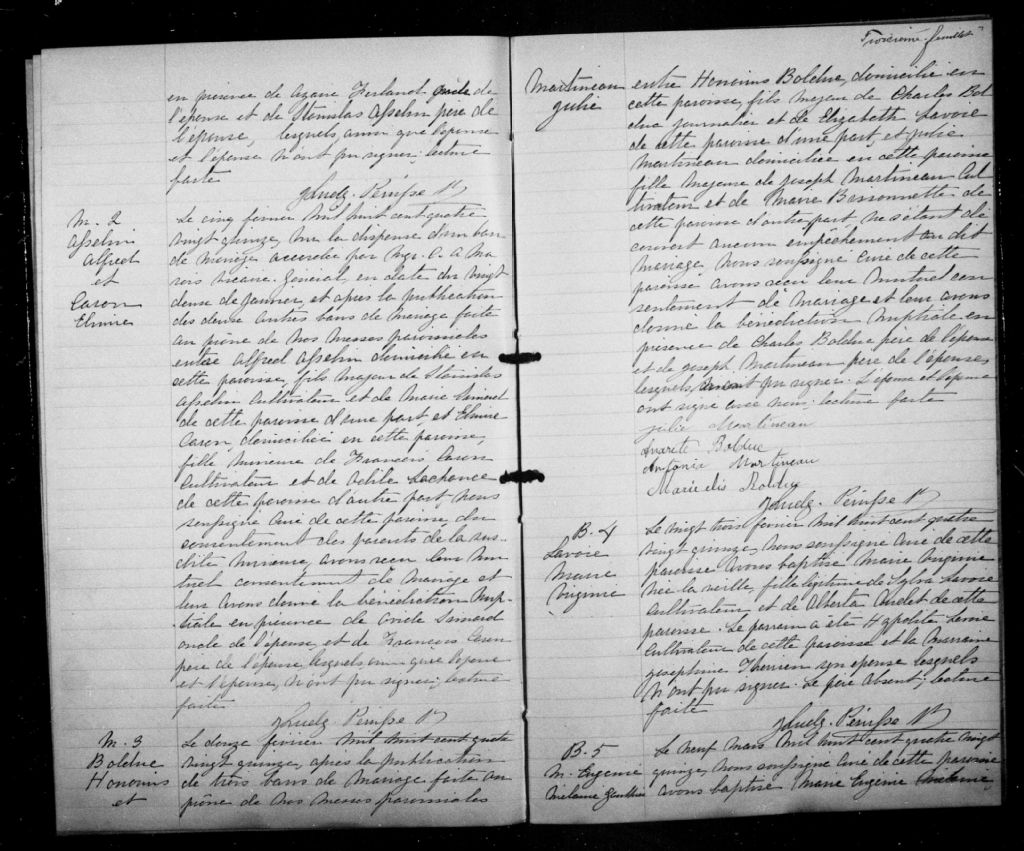 en présence de Azarie Ferland oncle de
l'épouse et de Stanislas Asselin père de
l'épouse, lesquels ainsi que l'époux
et l'épouse n'ont pu signer; lecture
faite
M. 2
Asselin
Alfred
et
Caron
Elmire
Le cinq février mil huit cent quatre
vingt quinze, vu la dispense d'un ban
de mariage accordée par Mgr. C. A Ma
rois vicaire Général, en date du vingt
deux de janvier, et après la publication
des deux autres bans de mariage faite
au prône de nos messes paroissiales
entre Alfred Asselin domicilié en
cette paroisse, fils majeur de Stanislas
Asselin cultivateur et de Marie Simard
de cette paroisse d'une part, et Elmire
Caron, domiciliée en cette paroisse,
fille mineure de Francois Caron
cultivateur et de Odile Lachance
de cette paroisse d'autre part nous
soussigné curé de cette paroisse, du
consentement des parents de la sus-
dite mineure, avons reçu leur mu
tuel consentement de mariage et
leur avons donné la bénédiction nup-
tiale en présence de Simard
oncle de l'épouse, et de Francois Caron
père de l'épouse, lesquels ainsi que l'époux
et l'épouse, n'ont pu signer; lecture
faite
M. 3
Bolduc
Honorius
et
Le douze février mil huit cent quatre
vingt quinze, après la publication
de trois bans de mariage faite au
prône de nos messes paroissiales
Troisième feuillet
Martineau
Julie
entre Honorius Bolduc, domicilié en
cette paroisse, fils majeur de Charles Bol
duc journalier et de Elizabeth Lavoie
de cette paroisse d'une part, et Julie
Martineau domiciliée en cette paroisse
fille majeure de Joseph Martineau cul
tivateur et de Marie Bissonnette de
cette paroisse d'autre part, ne s'étant dé
couvert aucun empêchement au dit
mariage nous soussigné curé de cette
paroisse avons reçu leur mutuel con
sentement de mariage et leur avons
donné la bénédiction nuptiale en
présence de Charles Bolduc père de l'époux
et de Joseph Martineau père de l'épouse,
lesquels n'ont pu signer. L'époux et l'épouse
ont signé avec nous; lecture faite
Julie Martineau
Bolduc
Antonia Martineau
Bolduc
B. 4
Lavoie
Marie
Virginie
Le vingt trois février mil huit cent quatre
vingt quinze, nous soussigné curé de cette
paroisse avons baptisé Marie Virginie
née la veille, fille légitime de Lavoie
cultivateur et de Alberta Audet de cette
paroisse. Le parrain a été Hypolite Lavoie
cultivateur de cette paroisse et la marraine
Josephine Therrien son épouse lesquels
n'ont pu signer. Le père absent; lecture
faite
B. 5
M. Eugenie
Le neuf mars mil huit cent quatre vingt
quinze, nous soussigné curé de cette paroisse
avons baptisé Marie Eugénie